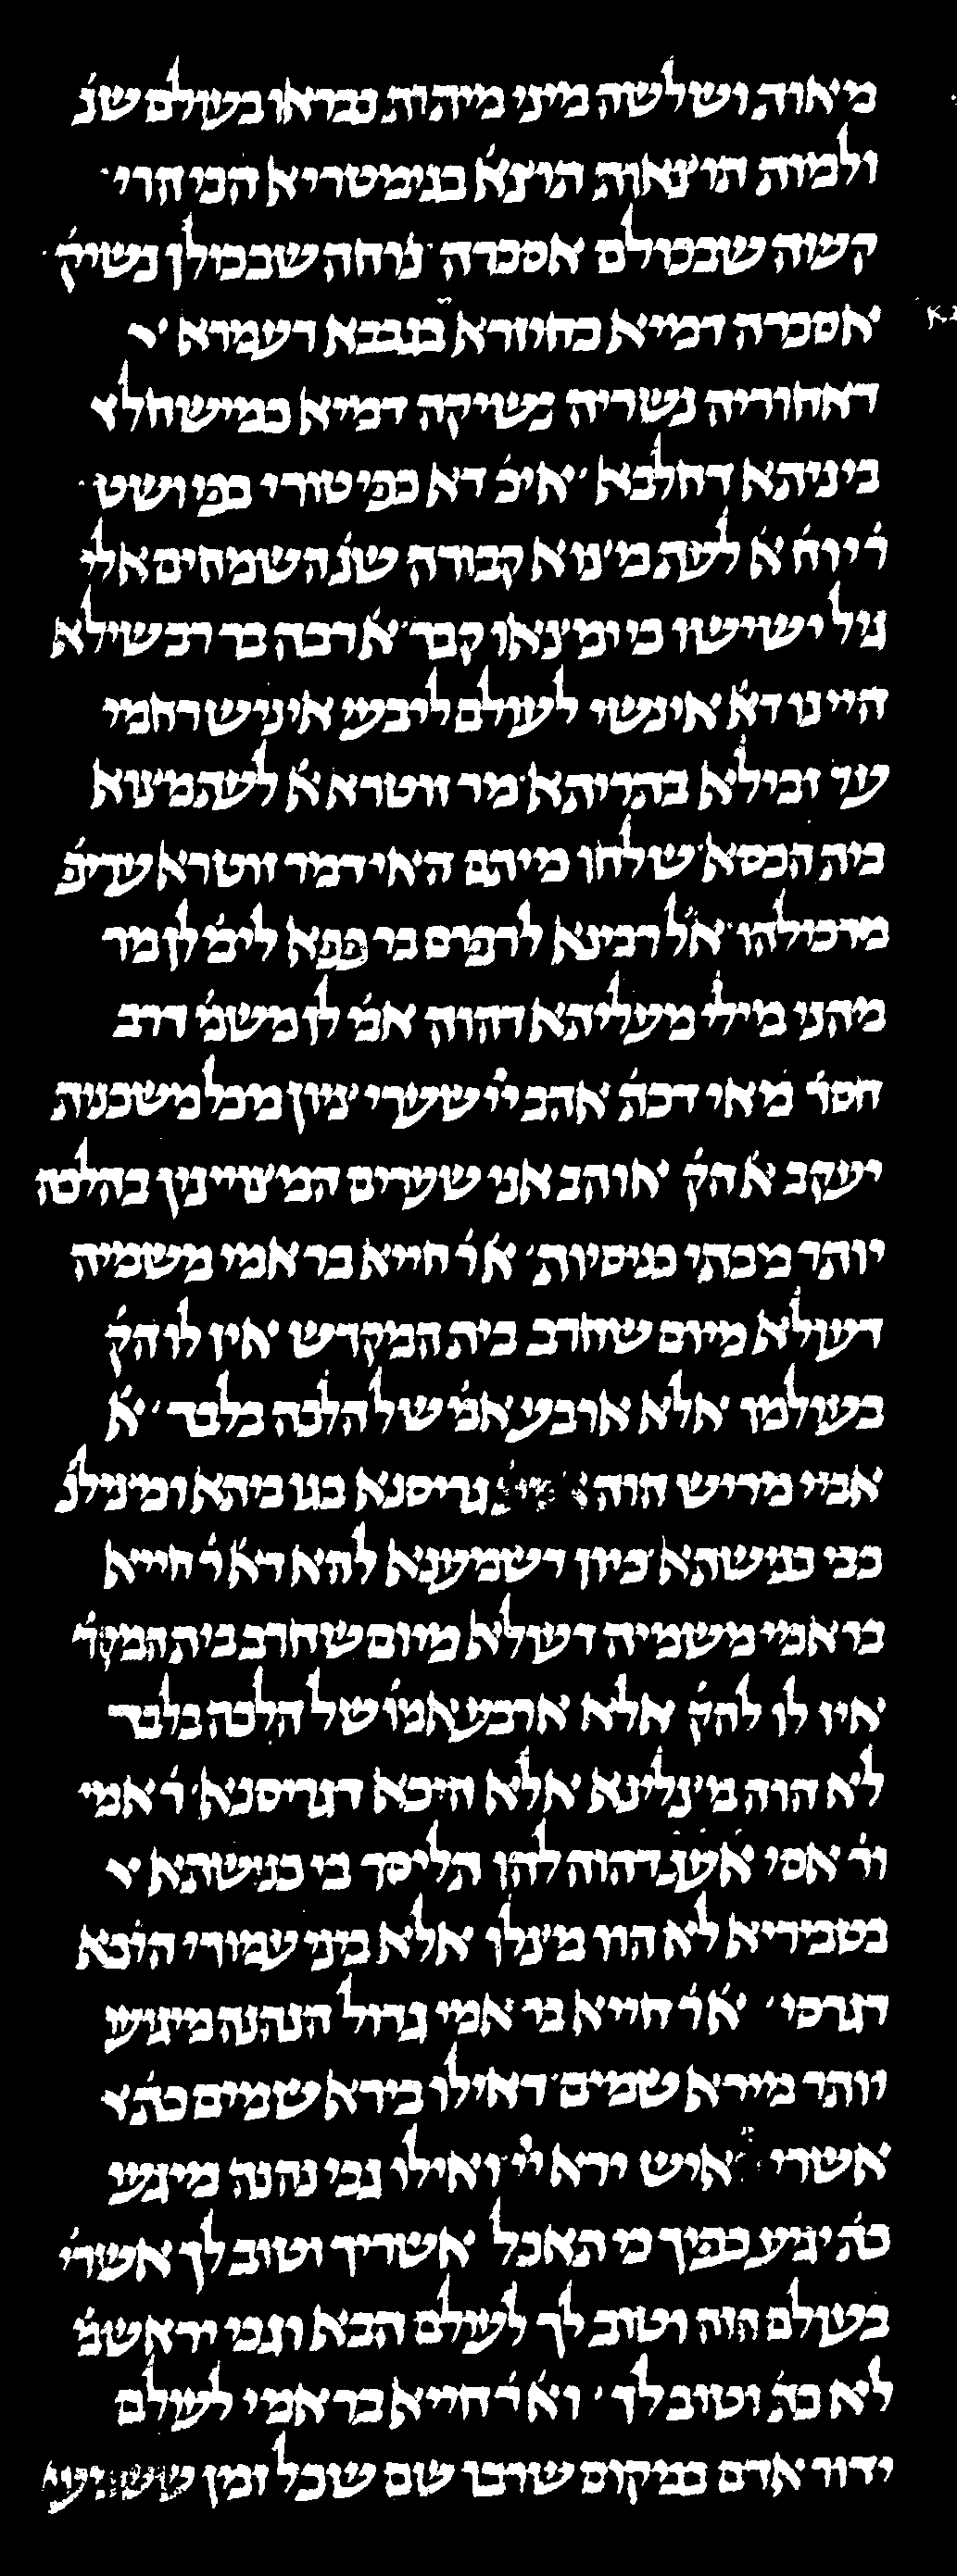 מאות ושלשה מיני מיתות נבראו בעולם שנ׳
ולמות תוצאות תוצא׳ בגימטריא הכי הוי
קשה שבכולם אסכרה נוחה שבכולן נשיק׳
אסכרה דמיא כחוזרא בגבבא דעמרא י׳
דאחוריה נשריה נשיקה דמיא כמישחל
ביניתא דחלבא איכ׳ דא כפיטורי בפי ושט
ר׳ יוח׳ א׳ לעת מצוא קבורה שנ׳ השמחים אלי
גיל ישישו כי ימצאו קבר א׳ רבה בר רב שילא
היינו דא׳ אינשי לעולם ליבעי איניש רחמי
עד זבילא בתריתא מר זוטרא א׳ לעת מצוא
בית הכסא שלחו מיתם האי דמר זוטרא עדיפ׳
מדכולהו א״ל רבינא לרפרם בר פפא לימ׳ לן מר
מהני מילי מעליתא דהוה אמ׳ לן משמ׳ דרב
חסד׳ מאי דכת׳ אהב ייי שערי ציון מכל משכנות
יעקב א׳ הק׳ אוהב אני שערים המצויינין בהלכה
יותר מבתי כניסיות א׳ר׳ חייא בר אמי משמיה
דעולא מיום שחרב בית המקדש אין לו הק׳
בעולמו אלא ארבע אמ׳ של הלכה בלבד א׳
אביי מריש הוה גריסנא בגו ביתא ומצילנ׳
בבי כנישתא כיון דשמענא להא דא׳ר׳ חייא
בר אמי משמיה דעולא מיום שחרב בית המקד׳
אין לו להק׳ אלא ארבע אמו׳ של הלכה בלבד
לא הוה מצלינא אלא היכא דגריסנא ר׳ אמי
ור׳ אסי אעג דהוה להן תליסר בי כנישתא י׳
בטבריא לא הוו מצלן אלא ביני עמודי היכא
דגרסי א׳ר׳ חייא בר אמי גדול הנהנה מיגיע
יותר מיירא שמים דאילו בירא שמים כת׳
אשרי איש ירא ייי ואילו גבי נהנה מיגע
כת׳ יגיע כפיך כי תאכל אשריך וטוב לך אשרי׳
בעולם הזה וטוב לך לעולם הבא וגבי ירא שמ׳
לא כת׳ וטוב לך וא׳ר׳ חייא בר אמי לעולם
ידור אדם במקום שרבו שם שכל זמן